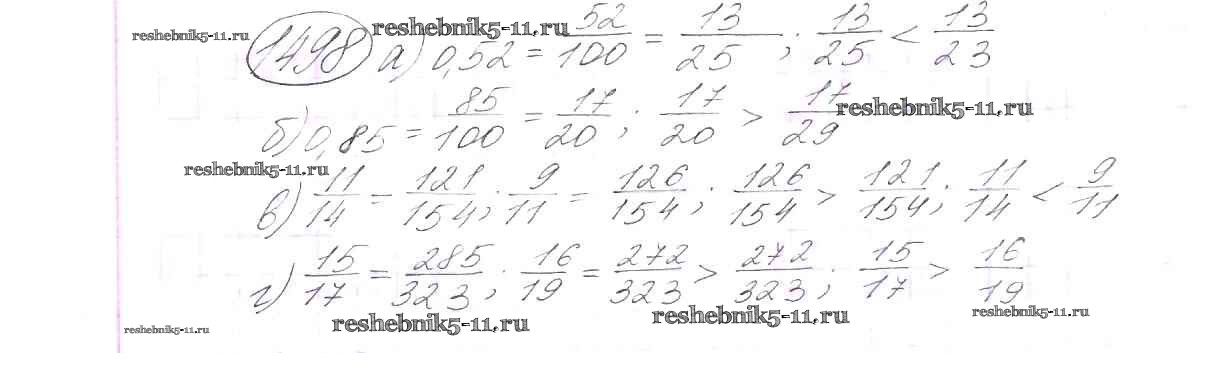 reshebnik5-11.ru
1498 а) 0,52 = 52/100 = 13/25; 13/25 < 13/23
reshebnik5-11.ru
б) 0,85 = 85/100 = 17/20; 17/20 > 17/29
reshebnik5-11.ru
reshebnik5-11.ru
в) 11/14 = 121/154; 9/11 = 126/154; 126/154 > 121/154; 11/14 < 9/11
г) 15/17 = 285/323; 16/19 = 272/323 > 272/323; 15/17 > 16/19
reshebnik5-11.ru
reshebnik5-11.ru
reshebnik5-11.ru
reshebnik5-11.ru